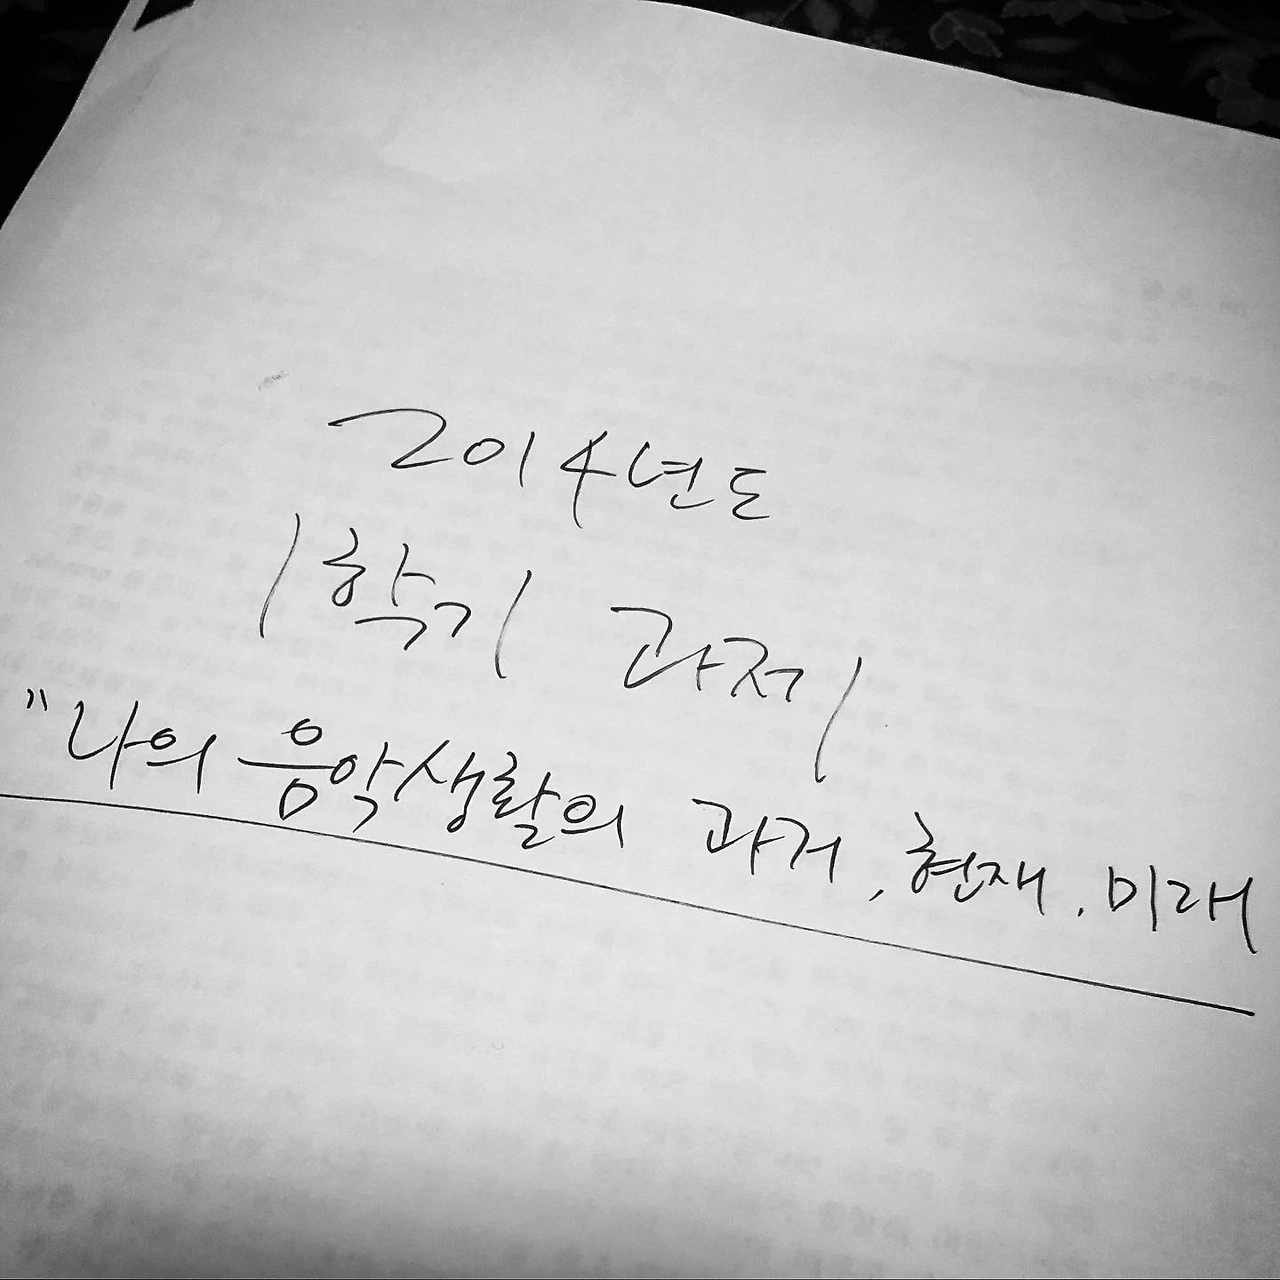 2014년도
1학기 과제
"나의 음악생활의 과거, 현재, 미래